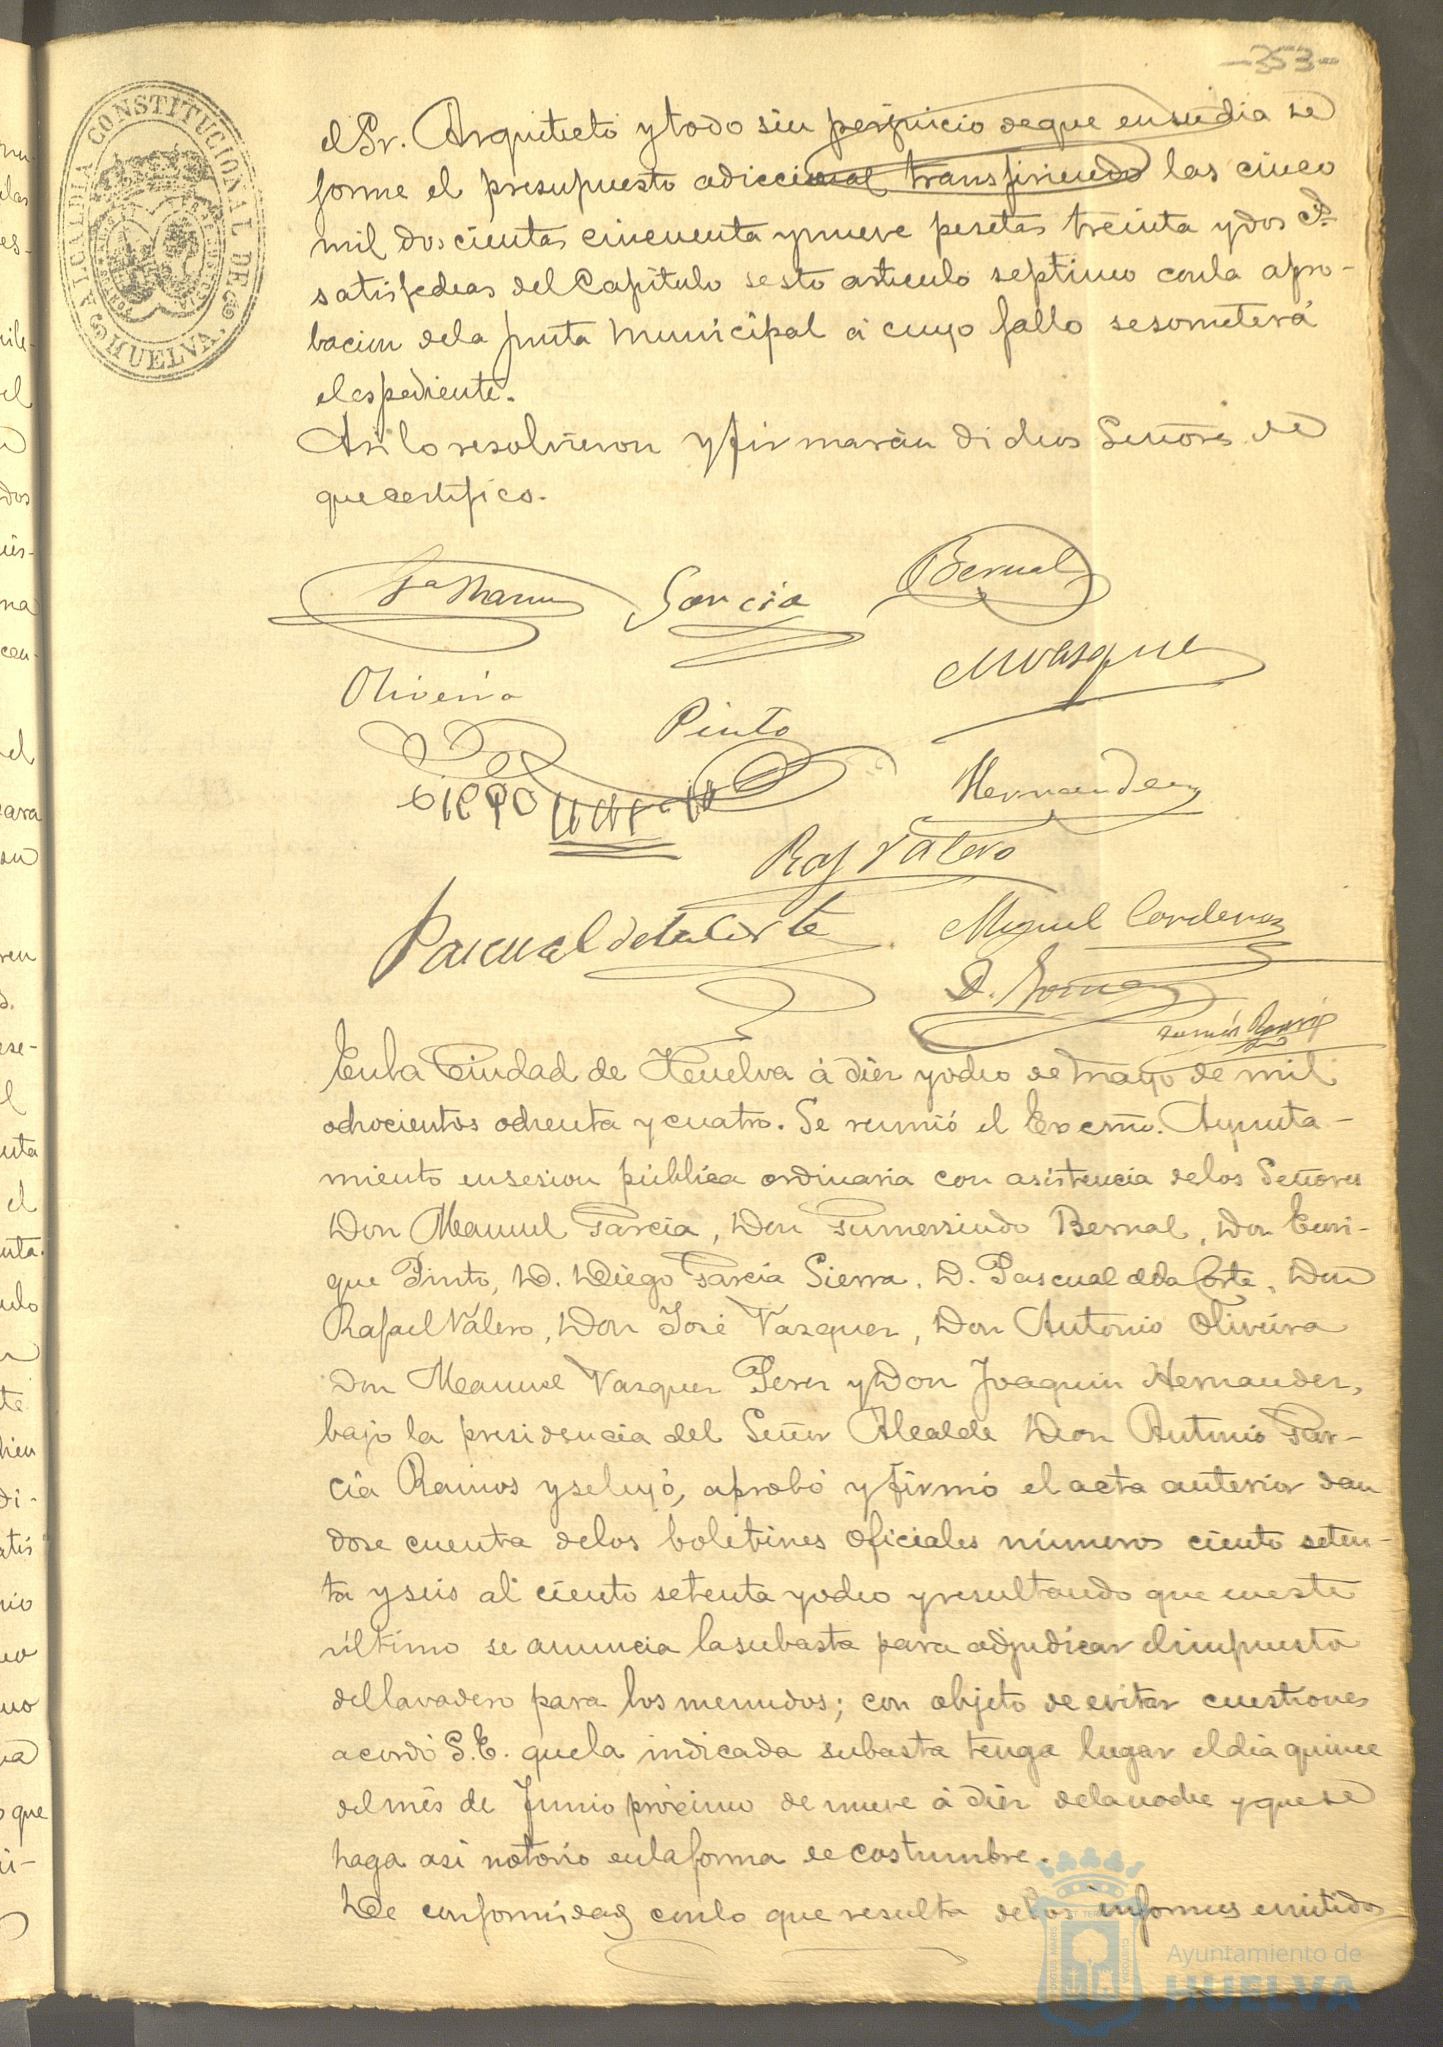 -353-
ALCALDIA CONSTITUCIONAL DE HUELVA.
el Sr. Arquitecto y todo sin perjuicio de que en su dia se
forme el presupuesto adiccional transfiriendo las cinco
mil doscientas cincuenta y nueve pesetas treinta y dos cs.
satisfechas del Capitulo sesto articulo septimo con la apro-
bacion de la junta Municipal á cuyo fallo se someterá
el espediente.
Asi lo resolvieron y firmarán dichos Señores de
que certifico.
Garcia
Bernal
Oliveira
Pinto
Hernandez
Raf Valero
Pascual de la Corte
Miguel Cordero
En la Ciudad de Huelva á diez y ocho de Mayo de mil
ochocientos ochenta y cuatro. Se reunió el Excmo. Ayunta-
miento en sesion pública ordinaria con asistencia de los Señores
Don Manuel Garcia, Don Gumersindo Bernal, Don Enri-
que Pinto, D. Diego Garcia Sierra, D. Pascual de la Corte, Don
Rafael Valero, Don José Vazquez, Don Antonio Oliveira
Don Manuel Vazquez Perez y Don Joaquin Hernandez,
bajo la presidencia del Señor Alcalde Don Antonio Gar-
cia Ramos y se leyó, aprobó y firmó el acta anterior dan
dose cuenta de los boletines oficiales números ciento seten-
ta y seis al ciento setenta y ocho y resultando que en este
último se anuncia la subasta para adjudicar el impuesto
del lavadero para los menudos; con objeto de evitar cuestiones
acordó S.E. que la indicada subasta tenga lugar el dia quince
del mes de Junio próximo de nueve á diez de la noche y que se
haga asi notorio en la forma de costumbre.
De conformidad con lo que resulta de los informes emitidos
Ayuntamiento de
HUELVA